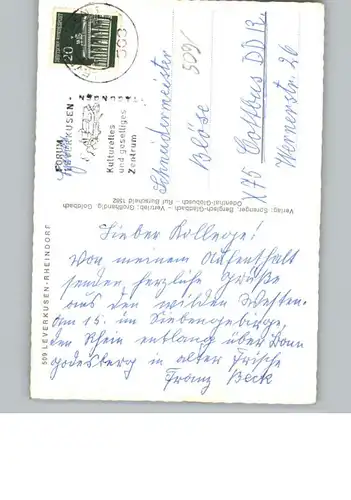 20
503
FORUM
LEVERKUSEN
Kulturelles
und geselliges
Zentrum
Schneidermeister
Blöse 509
X 75 Cottbus DDR.
Wernerstr. 26
Verlag: Sprenger, Bergisch-Gladbach – Vertrieb: Großhandlg. Goldbach
Odenthal-Glöbusch – Ruf Burscheid 1562
509 LEVERKUSEN-RHEINDORF
Lieber Kollege!
Von meinem Aufenthalt
senden herzliche Grüße
aus den wilden Westen.
Am 15. im Siebengebirge,
den Rhein entlang über Bonn
godesberg in alter Frische
Franz Beck